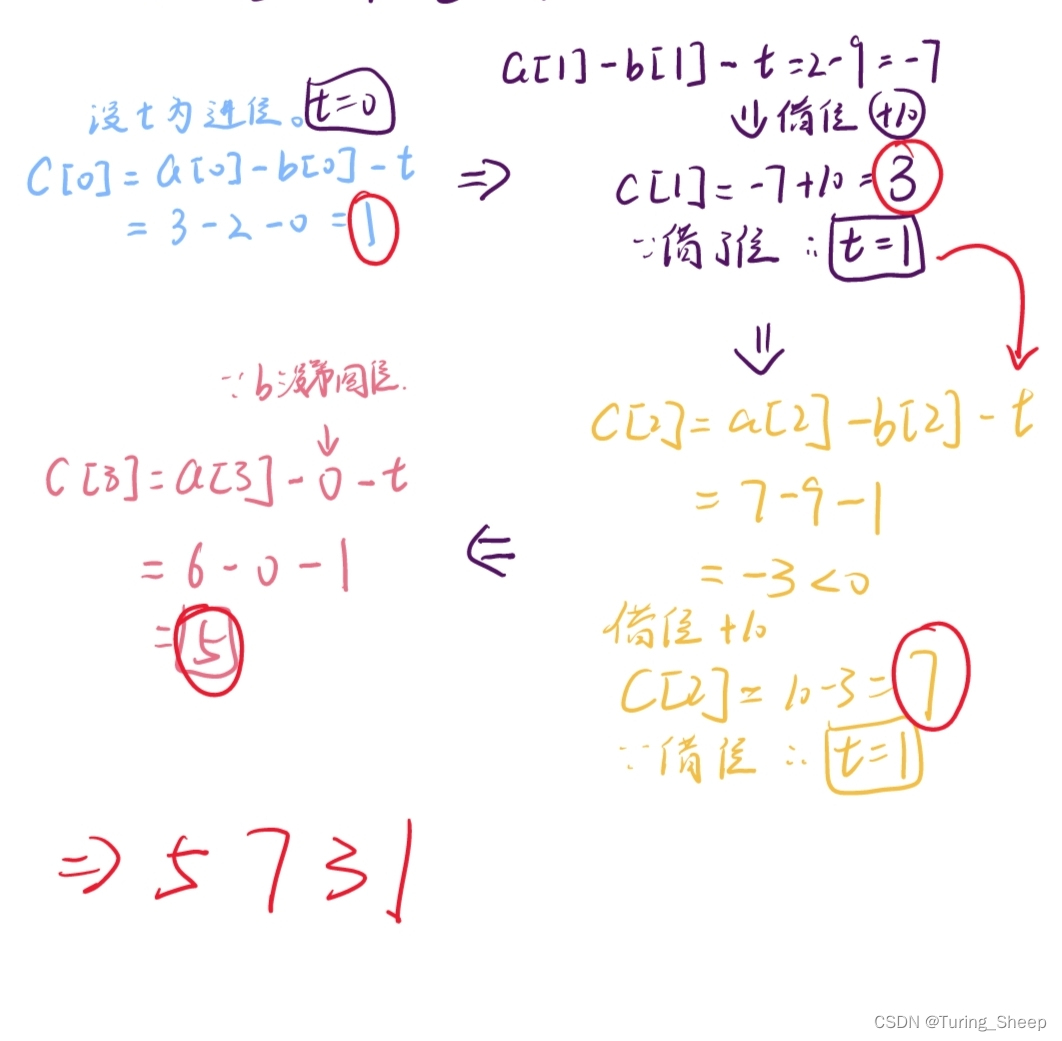 设t为进位。 t=0
C[0]=a[0]-b[0]-t
=3-2-0=1
⇒
a[1]-b[1]-t=2-9=-7
⇓借位 +10
C[1]=-7+10=3
∵借了位 ∴ t=1
⇓
C[2]=a[2]-b[2]-t
=7-9-1
=-3<0
借位+10
C[2]=10-3=7
∵借位 ∴ t=1
⇐
∵b没第四位.
↓
C[3]=a[3]-0-t
=6-0-1
=5
⇒ 5 7 3 1
CSDN @Turing_Sheep